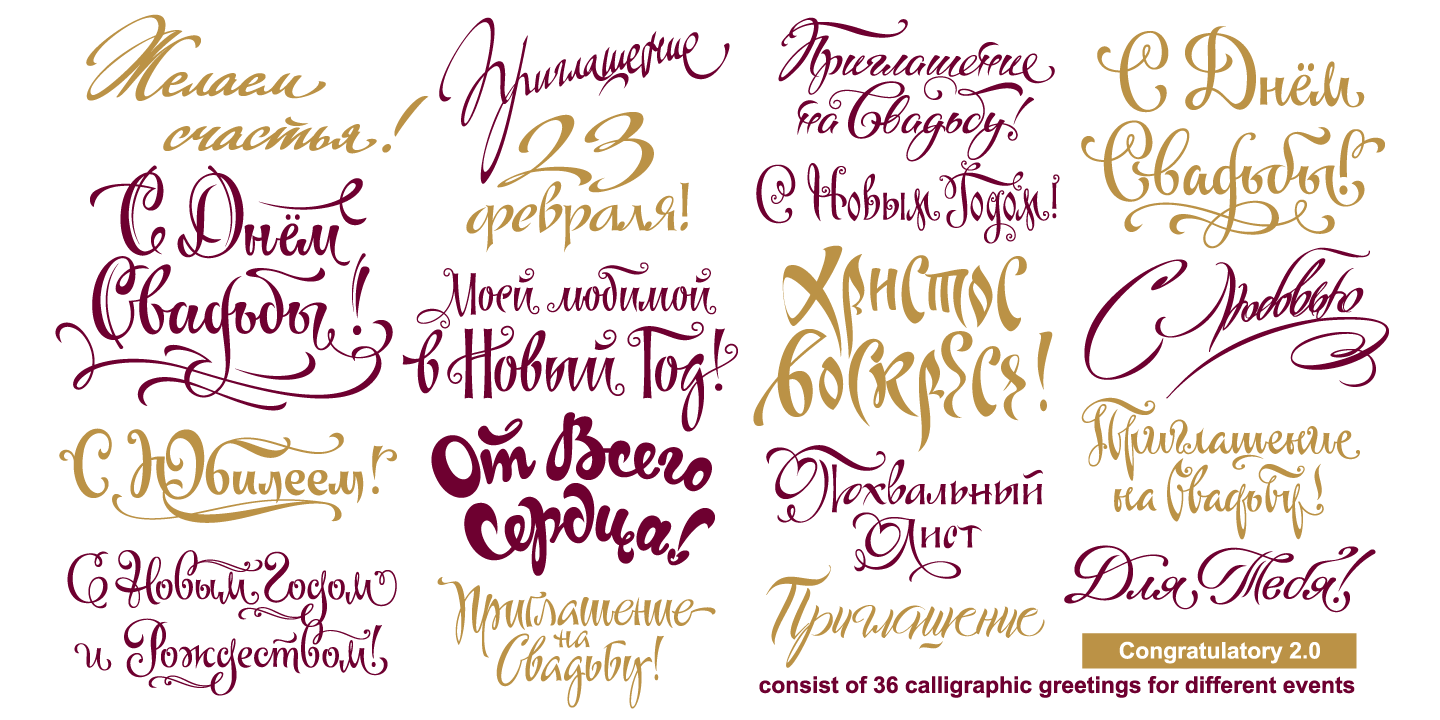 Желаем
счастья!
С Днём
Свадьбы!
С Юбилеем!
С Новым Годом
и Рождеством!
Приглашение
23
февраля!
Моей любимой
в Новый Год!
От Всего
Сердца!
Приглашение
на
Свадьбу!
Приглашение
на Свадьбу!
С Новым Годом!
Христос
воскресе!
Похвальный
Лист
Приглашение
С Днём
Свадьбы!
С Любовью
Приглашение
на Свадьбу!
Для Тебя!
Congratulatory 2.0
consist of 36 calligraphic greetings for different events